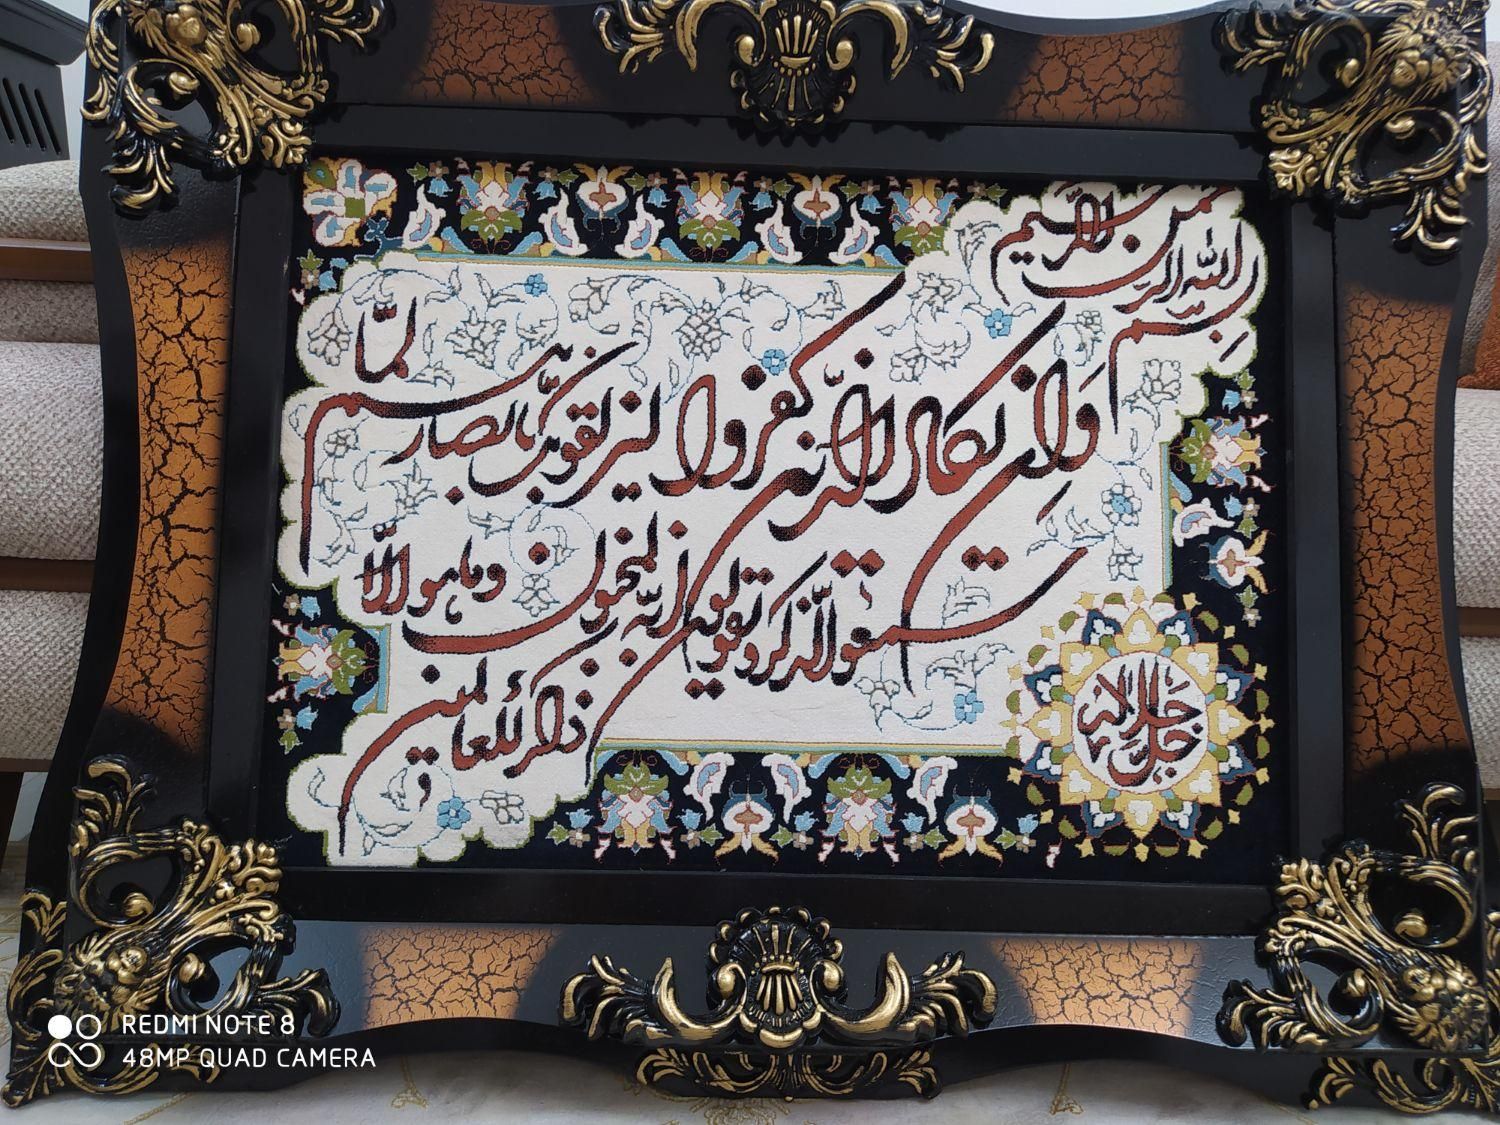 بسم الله الرحمن الرحیم
وَان یکاد الذین کفروا لیزلقونک بابصارهم لمّا
سمعوا الذکر و یقولون انه لمجنون و ما هو الّا
ذکر للعالمین
جل جلاله
REDMI NOTE 8
48MP QUAD CAMERA